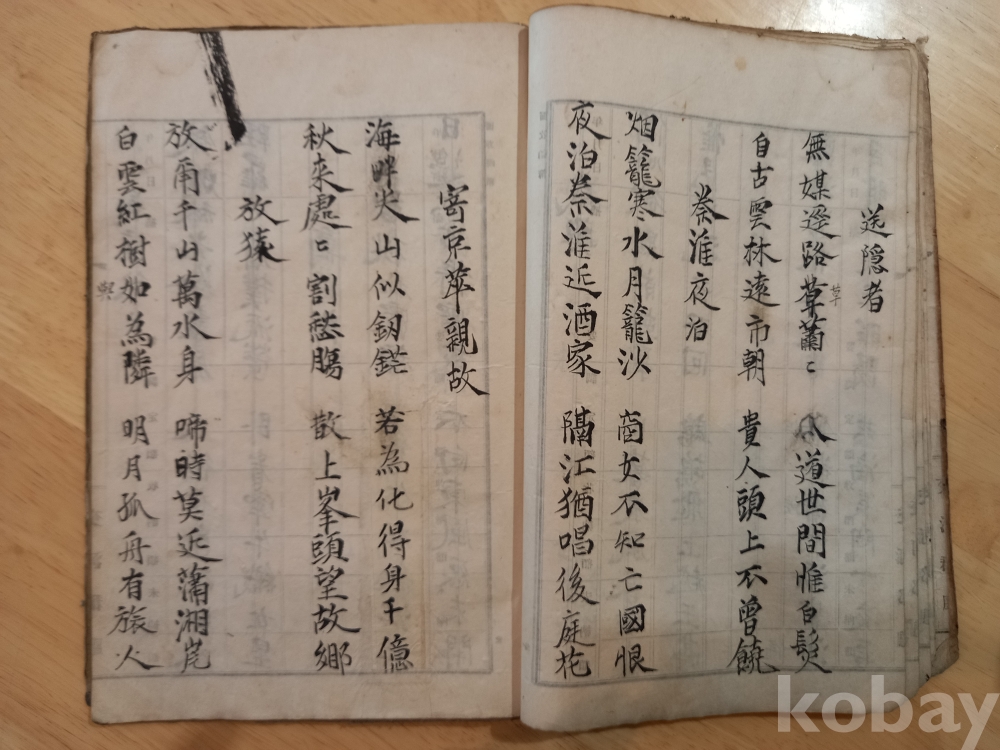 送隐者
無媒逕路草蕭〻 公道世間惟白髮
草
自古雲林遠市朝 貴人頭上不曾饒
秦淮夜泊
烟籠寒水月籠沙 商女不知亡國恨
夜泊秦淮近酒家 隔江猶唱後庭花
寄京華親故
海畔尖山似釼鋩 若為化得身千億
秋來處〻割愁膓 散上峯頭望故鄉
放猿
放爾千山萬水身 啼時莫近瀟湘岸
白雲紅樹如為隣 明月孤舟有旅人
kobay